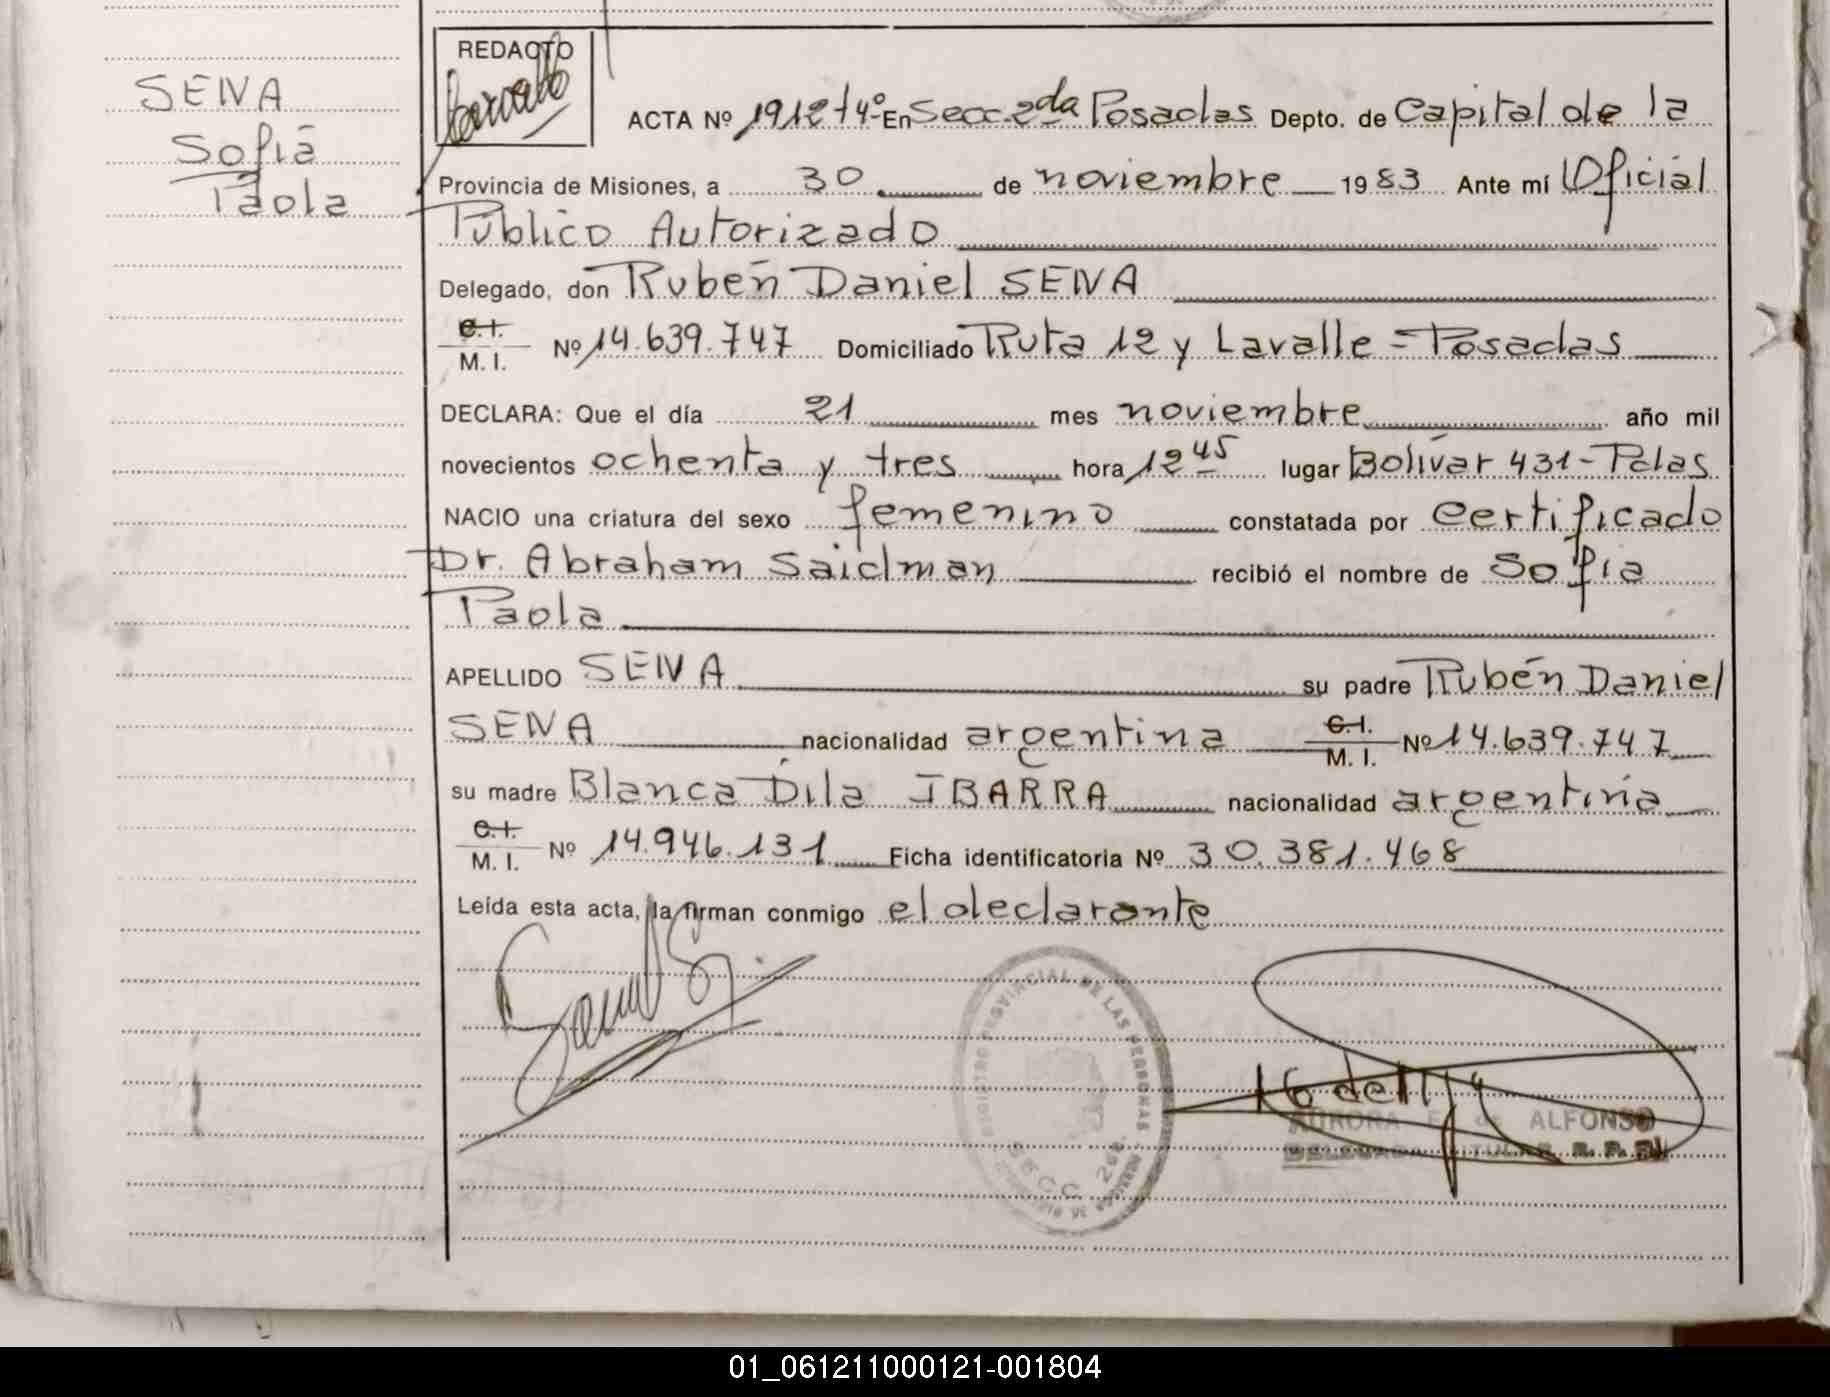 SENA
Sofia
Paola
REDACTO
ACTA Nº 1912 t4º En Secc. 2da Posadas Depto. de Capital de la
Provincia de Misiones, a 30 de noviembre 1983 Ante mí Oficial
Público Autorizado
Delegado, don Rubén Daniel SENA
C.I.
M. I. Nº 14.639.747 Domiciliado Ruta 12 y Lavalle = Posadas
DECLARA: Que el día 21 mes noviembre año mil
novecientos ochenta y tres hora 12 45 lugar Bolívar 431 - Pdas
NACIO una criatura del sexo femenino constatada por certificado
Dr. Abraham Saidman recibió el nombre de Sofia
Paola
APELLIDO SENA su padre Rubén Daniel
SENA nacionalidad argentina C.I. M. I. Nº 14.639.747
su madre Blanca Dila IBARRA nacionalidad argentina
C.I.
M. I. Nº 14.946.131 Ficha identificatoria Nº 30.381.468
Leída esta acta, la firman conmigo el declarante
REGISTRO PROVINCIAL DE LAS PERSONAS
SECC. 2da
AURORA E. de ALFONSO
DELEGADA TITULAR R. P. P.
01_061211000121-001804